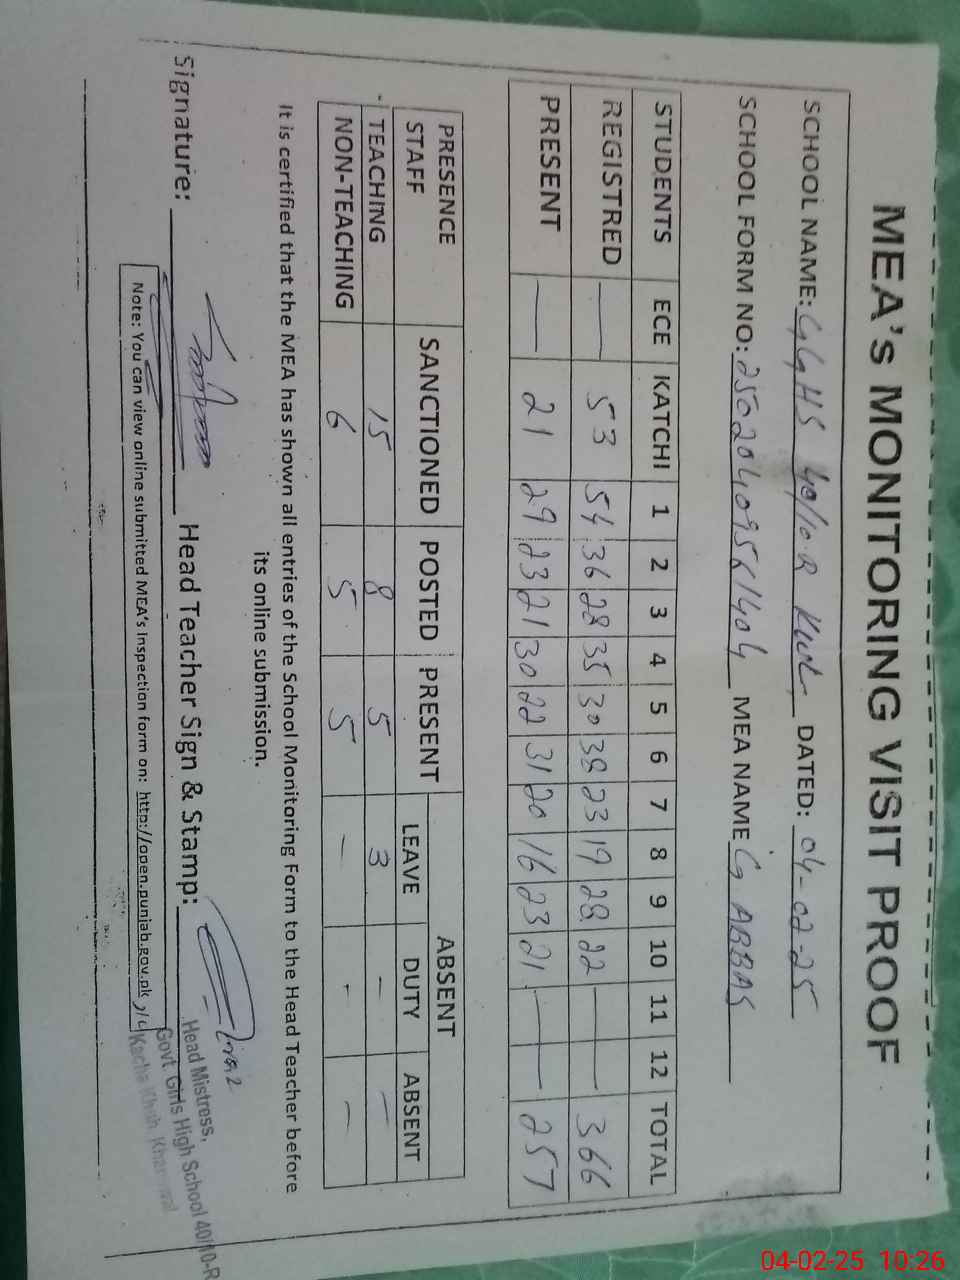 MEA's MONITORING VISIT PROOF
SCHOOL NAME: GGHS 40/10.R Kwl DATED: 04-02-25
SCHOOL FORM NO: MEA NAME G ABBAS
STUDENTS ECE KATCHI 1 2 3 4 5 6 7 8 9 10 11 12 TOTAL
REGISTRED — 53 54 36 28 35 30 38 23 19 28 22 — — 366
PRESENT — 21 29 23 21 30 22 31 20 16 23 21 — — 257
PRESENCE STAFF SANCTIONED POSTED PRESENT ABSENT
LEAVE DUTY ABSENT
TEACHING 15 8 5 3 - —
NON-TEACHING 6 5 5 — - —
It is certified that the MEA has shown all entries of the School Monitoring Form to the Head Teacher before
its online submission.
Signature: Head Teacher Sign & Stamp:
Head Mistress,
Govt. Girls High School 40/10-R
Kacha Khuh
Note: You can view online submitted MEA's Inspection form on: http://open.punjab.gov.pk
04-02-25 10:26